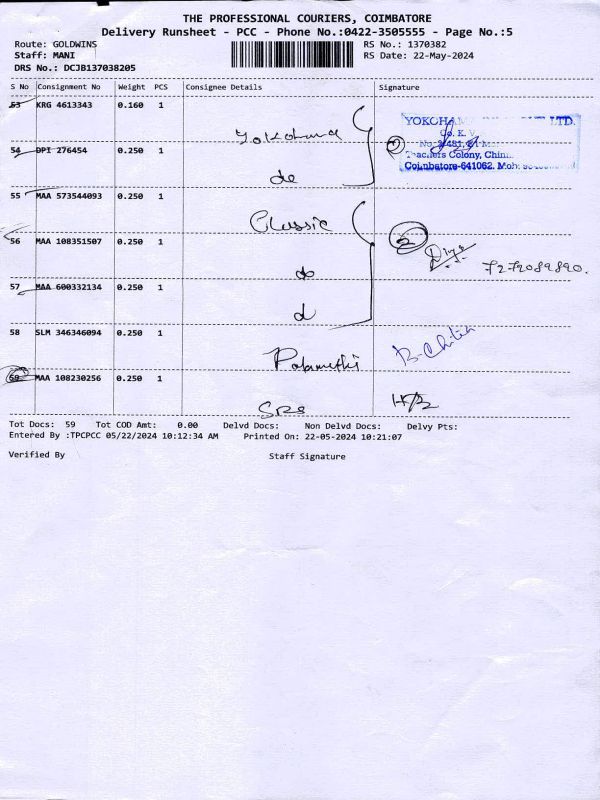 THE PROFESSIONAL COURIERS, COIMBATORE
Delivery Runsheet - PCC - Phone No.:0422-3505555 - Page No.:5
Route: GOLDWINS RS No.: 1370382
Staff: MANI RS Date: 22-May-2024
DRS No.: DCJB137038205
S No Consignment No Weight PCS Consignee Details Signature
53 KRG 4613343 0.160 1
Yokohama
YOKOHAMA LTD.
54 DPI 276454 0.250 1
do
Teachers Colony,
Coimbatore-641062. Mob:
55 MAA 573544093 0.250 1
Classic
56 MAA 108351507 0.250 1
2
7272089890.
do
57 MAA 600332134 0.250 1
d
58 SLM 346346094 0.250 1
69 MAA 108230256 0.250 1
Tot Docs: 59 Tot COD Amt: 0.00 Delvd Docs: Non Delvd Docs: Delvy Pts:
Entered By :TPCPCC 05/22/2024 10:12:34 AM Printed On: 22-05-2024 10:21:07
Verified By Staff Signature